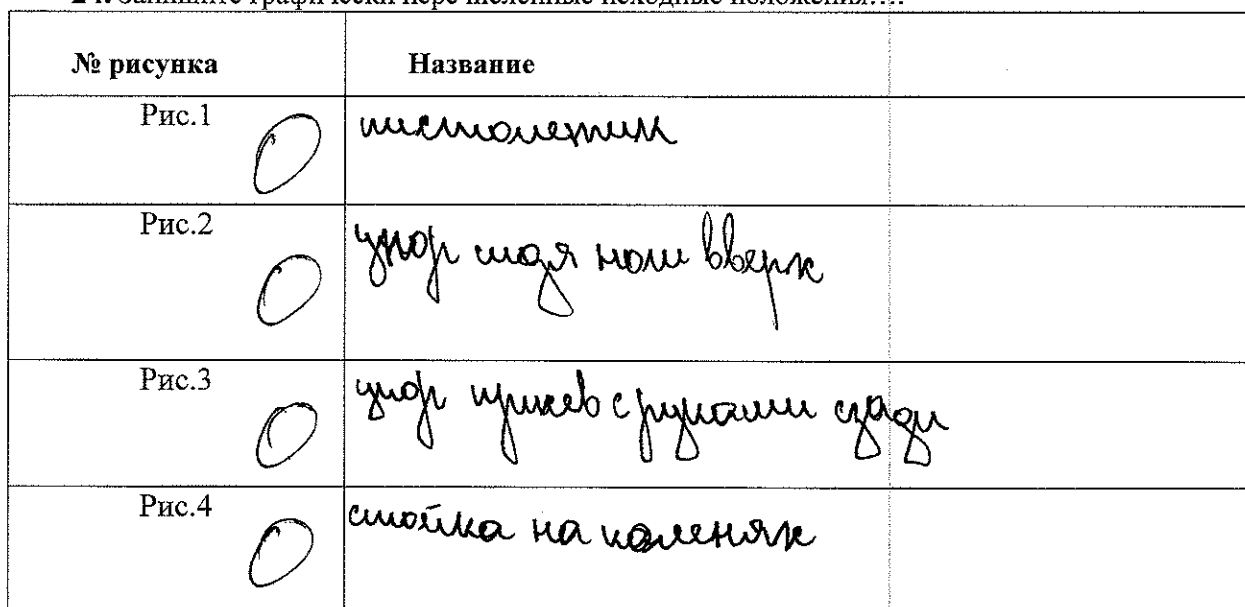 24. Запишите графически перечисленные исходные положения….
№ рисунка Название
Рис.1 пистолетик
Рис.2 упор сидя ноги вверх
Рис.3 упор присев с руками сзади
Рис.4 стойка на коленях